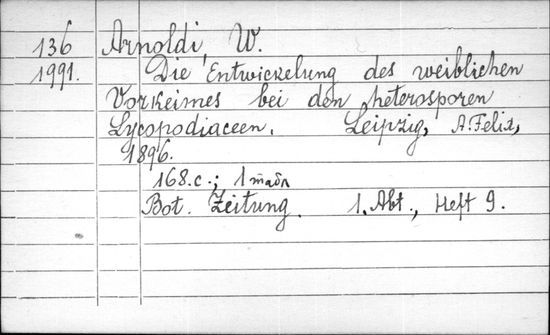 136 Arnoldi, W.
1991. Die Entwickelung des weiblichen
Vorkeimes bei den heterosporen
Lycopodiaceen. Leipzig, A. Felix,
1896.
168.c.; 1 табл
Bot. Zeitung. 1. Abt., Heft 9.